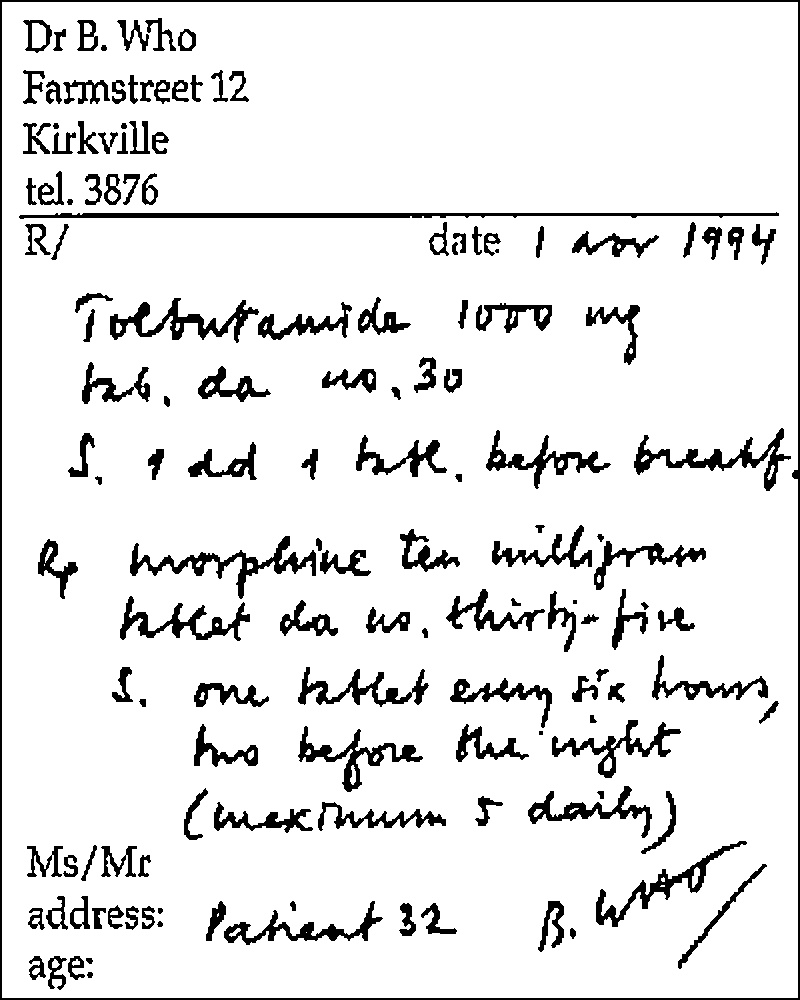 Dr B. Who
Farmstreet 12
Kirkville
tel. 3876
R/ date 1 apr 1994
Tolbutamide 1000 mg
tab. da no. 30
S. 1 dd 1 tabl. before breakf.
Rp morphine ten milligram
tablet da no. thirty-five
S. one tablet every six hours,
two before the night
(maximum 5 daily)
Ms/Mr
address: Patient 32 B. Who
age: